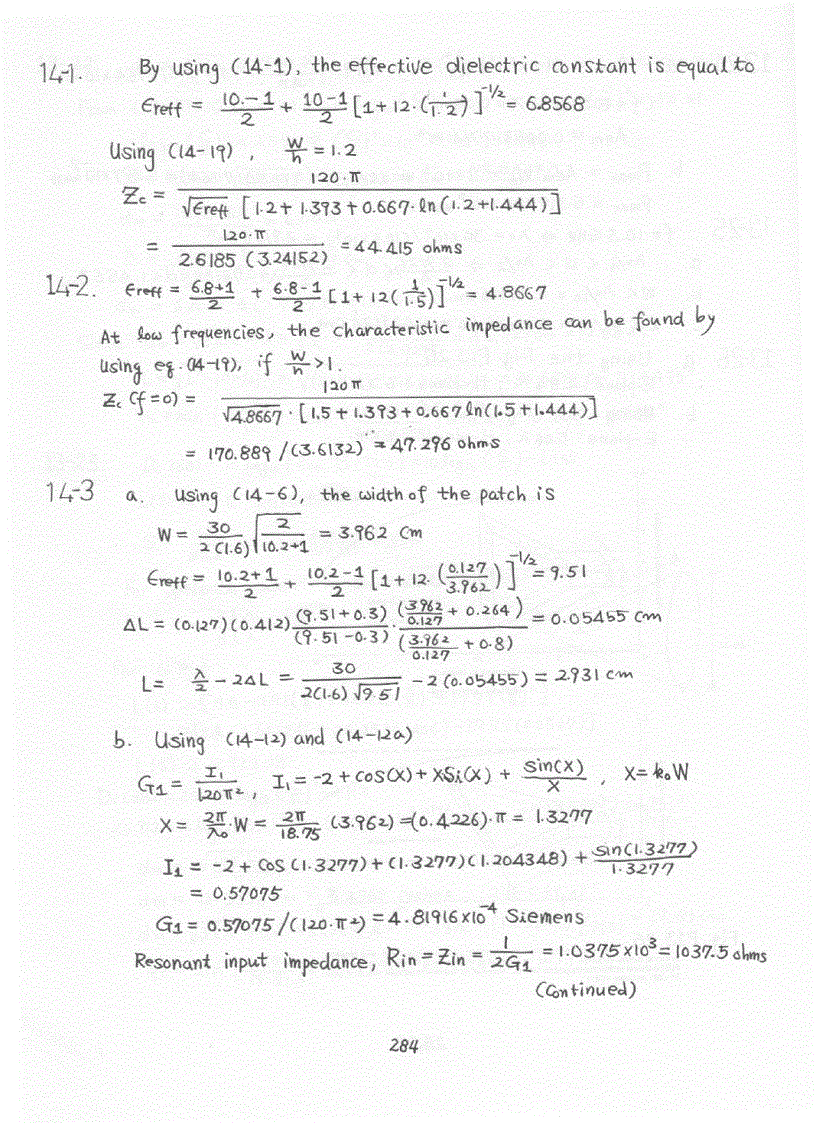 14-1. By using (14-1), the effective dielectric constant is equal to
Єreff = (10.-1)/2 + (10-1)/2 [1+12·(1/1.2)]^-1/2 = 6.8568
Using (14-19), W/h = 1.2
Zc = 120·π / (√Єreff [1.2+1.393+0.667·ln(1.2+1.444)])
= 120·π / (2.6185 (3.24152)) = 44.415 ohms
14-2. Єreff = (6.8+1)/2 + (6.8-1)/2 [1+12(1/1.5)]^-1/2 = 4.8667
At low frequencies, the characteristic impedance can be found by
using eq. (14-19), if W/h >1.
Zc (f=0) = 120π / (√4.8667 · [1.5+1.393+0.667 ln(1.5+1.444)])
= 170.889 /(3.6132) = 47.296 ohms
14-3 a. Using (14-6), the width of the patch is
W = 30/(2(1.6)) √(2/(10.2+1)) = 3.962 cm
Єreff = (10.2+1)/2 + (10.2-1)/2 [1+12·(0.127/3.962)]^-1/2 = 9.51
ΔL = (0.127)(0.412) (9.51+0.3)/(9.51-0.3) · (3.962/0.127 + 0.264)/(3.962/0.127 + 0.8) = 0.05455 cm
L = λ/2 - 2ΔL = 30/(2(1.6)√9.51) - 2(0.05455) = 2.931 cm
b. Using (14-12) and (14-12a)
G1 = I1/(120π²), I1 = -2+cos(X)+XSi(X) + sin(X)/X, X=k0W
X = 2π/λ0·W = 2π/18.75 (3.962) =(0.4226)·π = 1.3277
I1 = -2+cos(1.3277)+(1.3277)(1.204348)+ sin(1.3277)/1.3277
= 0.57075
G1 = 0.57075/(120·π²) = 4.81916x10^-4 Siemens
Resonant input impedance, Rin = Zin = 1/(2G1) = 1.0375x10³ = 1037.5 ohms
(Continued)
284